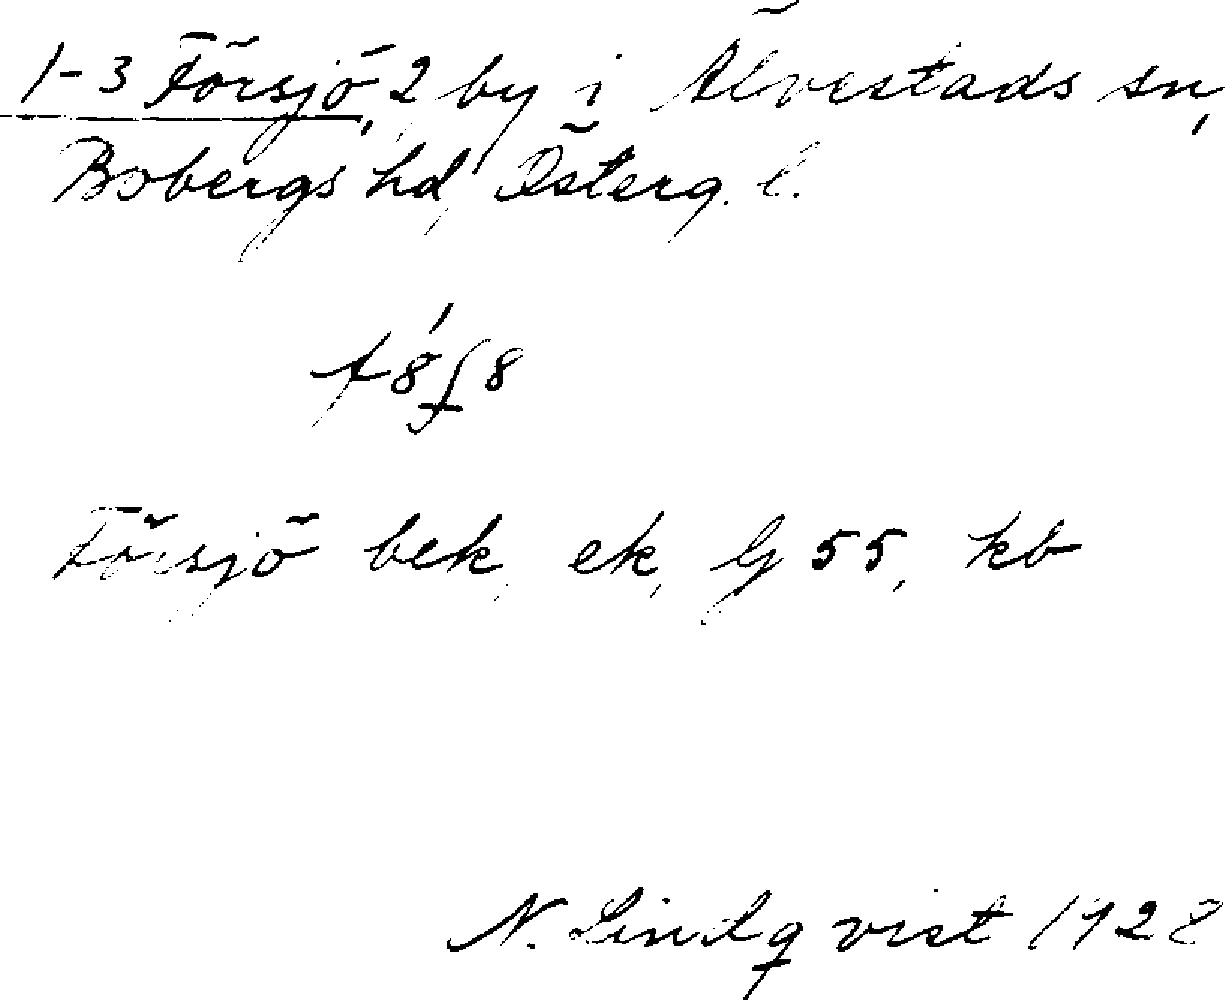 1-3 Försjö, 2, by i Älvestads sn,
Bobergs hd, Österg. l.
Försjö bek, ek, Gj 55, kb
N. Lindqvist 1928